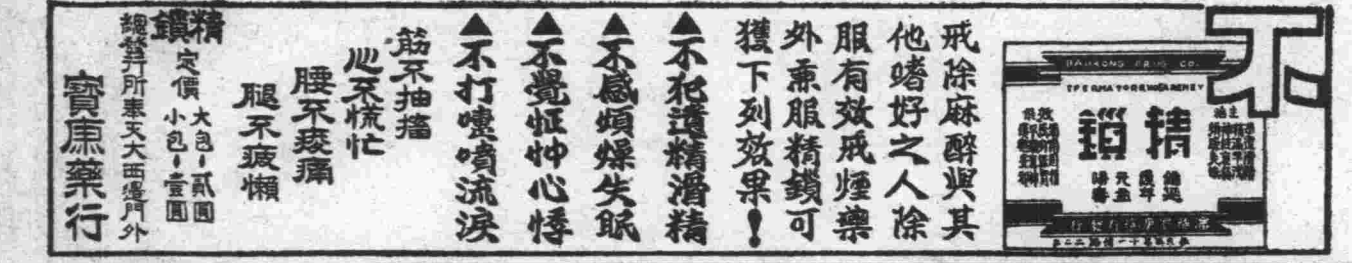 不
PAUKONG DRUG CO.
精鎖
戒除麻醉與其
他嗜好之人除
服有效戒煙藥
外兼服精鎖可
獲下列效果！
▲不犯遺精滑精
▲不感煩燥失眠
▲不覺怔忡心悸
▲不打嚏噴流淚
筋不抽搐
心不慌忙
腰不痠痛
腿不疲懶
精鎖
定價
大包-貳圓
小包-壹圓
總發行所奉天大西邊門外
寶康藥行